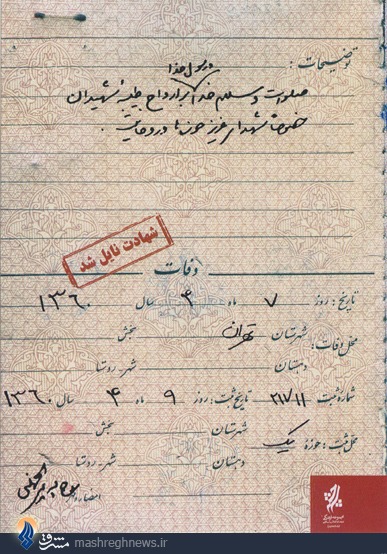 توضیحات:
و رسول خدا
صلوات و سلام خدا بر ارواح طیبهٔ شهیدان
خصوصاً شهدای عزیز حوزه‌ها و روحانیت.
شهادت نایل شد
وفات
تاریخ: روز ۷ ماه ۴ سال ۱۳۶۰
محل وفات: شهرستان تهران بخش
دهستان شهر - روستا
شماره ثبت ۲۱۷۱۱ تاریخ ثبت: روز ۹ ماه ۴ سال ۱۳۶۰
محل ثبت: حوزه یک شهرستان بخش
دهستان شهر - روستا
امضاء
مشرق mashreghnews.ir